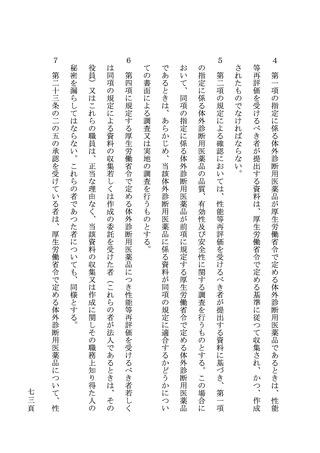 4　第一項の指定に係る体外診断用医薬品が厚生労働省令で定める体外診断用医薬品であるときは、性能
等再評価を受けるべき者が提出する資料は、厚生労働省令で定める基準に従つて収集され、かつ、作成
されたものでなければならない。
5　第二項の規定による確認においては、性能等再評価を受けるべき者が提出する資料に基づき、第一項
の指定に係る体外診断用医薬品の品質、有効性及び安全性に関する調査を行うものとする。この場合に
おいて、同項の指定に係る体外診断用医薬品が前項に規定する厚生労働省令で定める体外診断用医薬品
であるときは、あらかじめ、当該体外診断用医薬品に係る資料が同項の規定に適合するかどうかについ
ての書面による調査又は実地の調査を行うものとする。
6　第四項に規定する厚生労働省令で定める体外診断用医薬品につき性能等再評価を受けるべき者若しく
は同項の規定による資料の収集若しくは作成の委託を受けた者（これらの者が法人であるときは、その
役員）又はこれらの職員は、正当な理由なく、当該資料の収集又は作成に関しその職務上知り得た人の
秘密を漏らしてはならない。これらの者であつた者についても、同様とする。
7　第二十三条の二の五の承認を受けている者は、厚生労働省令で定める体外診断用医薬品について、性
七三頁